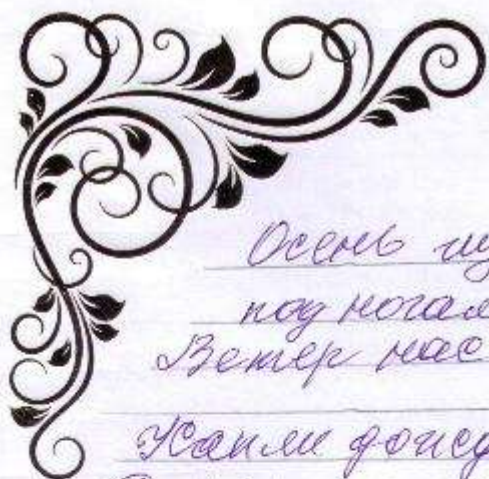 Осень
под ногам
Ветер нас
Капли дожд